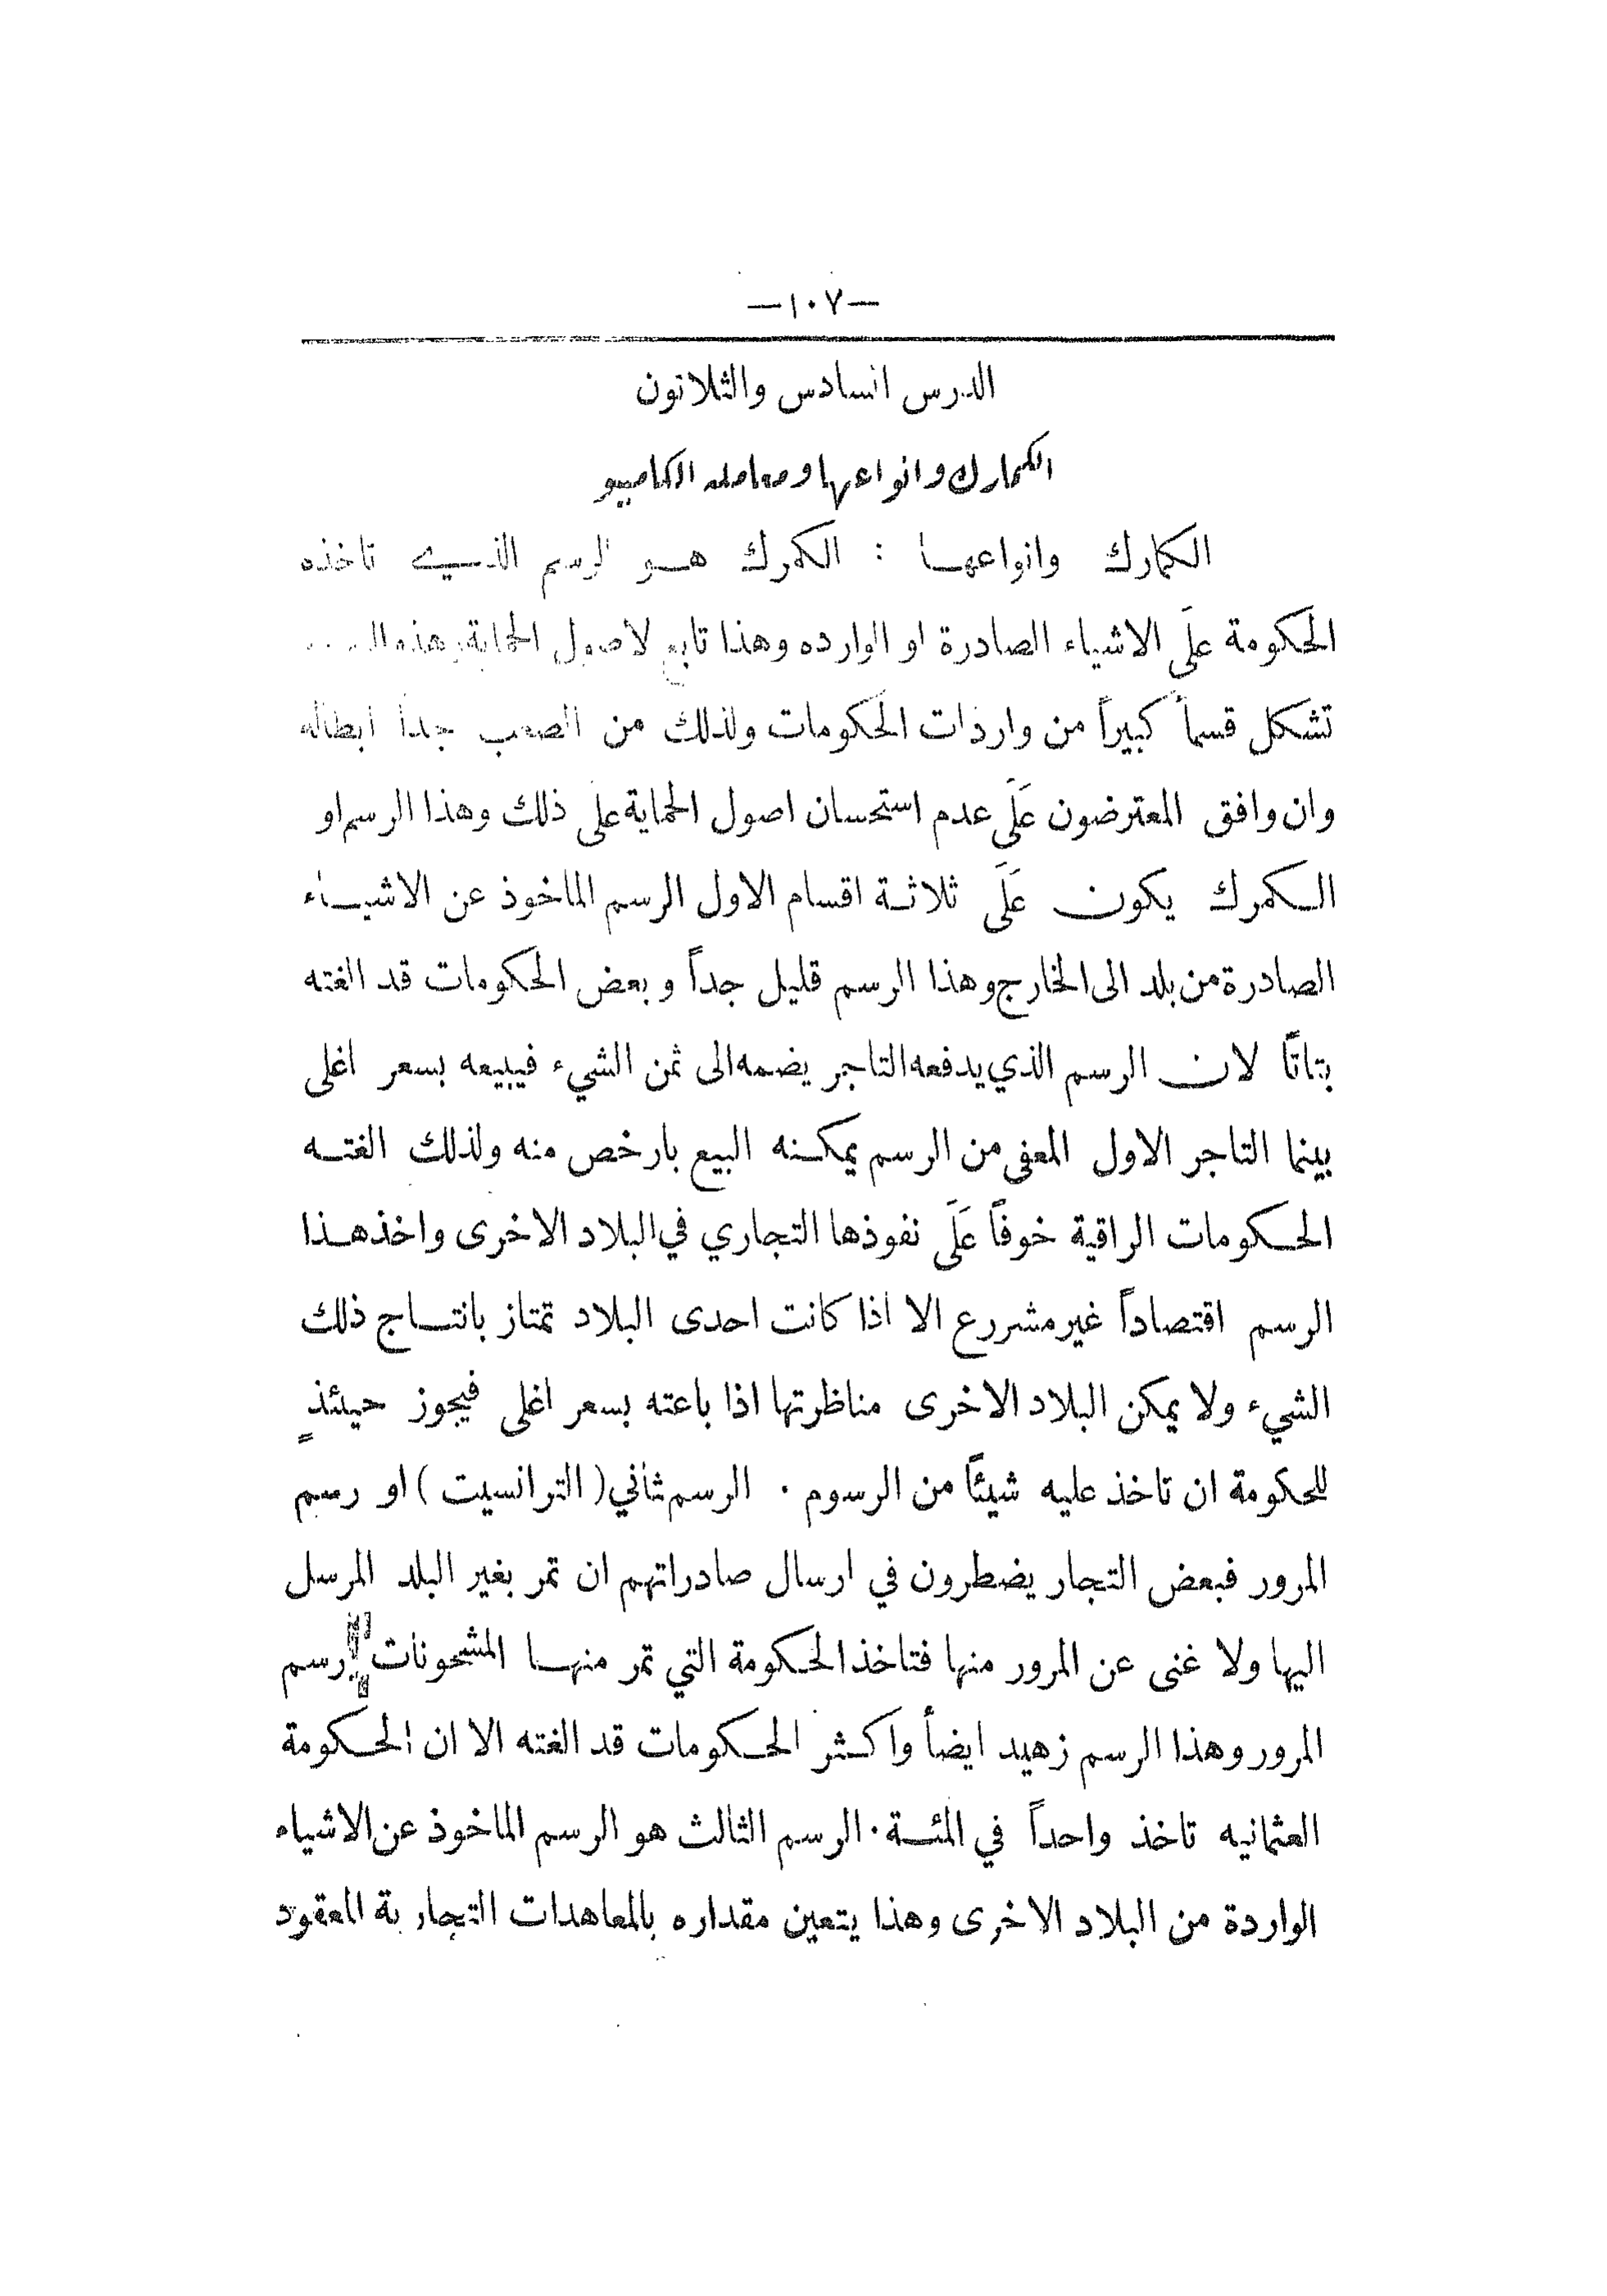 —١٠٧—
الدرس السادس والثلاثون
الكمارك وانواعها ومعاملة الكامبيو
الكمارك وانواعها : الكمرك هو الرسم الذي تاخذه
الحكومة علَى الاشياء الصادرة او الوارده وهذا تابع لاصول الحماية وهذه
تشكل قسماً كبيراً من واردات الحكومات ولذلك من الصعب جداً ابطاله
وان وافق المعترضون علَى عدم استحسان اصول الحماية على ذلك وهذا الرسم او
الكمرك يكون علَى ثلاثة اقسام الاول الرسم الماخوذ عن الاشياء
الصادرة من بلد الى الخارج وهذا الرسم قليل جداً وبعض الحكومات قد الغته
بتاتًا لان الرسم الذي يدفعه التاجر يضمه الى ثمن الشيء فيبيعه بسعر اغلى
بينما التاجر الاول المعفى من الرسم يمكنه البيع بارخص منه ولذلك الغته
الحكومات الراقية خوفًا علَى نفوذها التجاري في البلاد الاخرى واخذ هذا
الرسم اقتصاداً غير مشررع الا اذا كانت احدى البلاد تمتاز بانتاج ذلك
الشيء ولا يمكن البلاد الاخرى مناظرتها اذا باعته بسعر اغلى فيجوز حيئذٍ
للحكومة ان تاخذ عليه شيئًا من الرسوم . الرسم ثاني ( الترانسيت ) او رسم
المرور فبعض التجار يضطرون في ارسال صادراتهم ان تمر بغير البلد المرسل
اليها ولا غنى عن المرور منها فتاخذ الحكومة التي تمر منها المشحونات رسم
المرور وهذا الرسم زهيد ايضاً واكثر الحكومات قد الغته الا ان الحكومة
العثمانيه تاخذ واحداً في المئة . الرسم الثالث هو الرسم الماخوذ عن الاشياء
الواردة من البلاد الاخرى وهذا يتعين مقداره بالمعاهدات التجارية المعقود